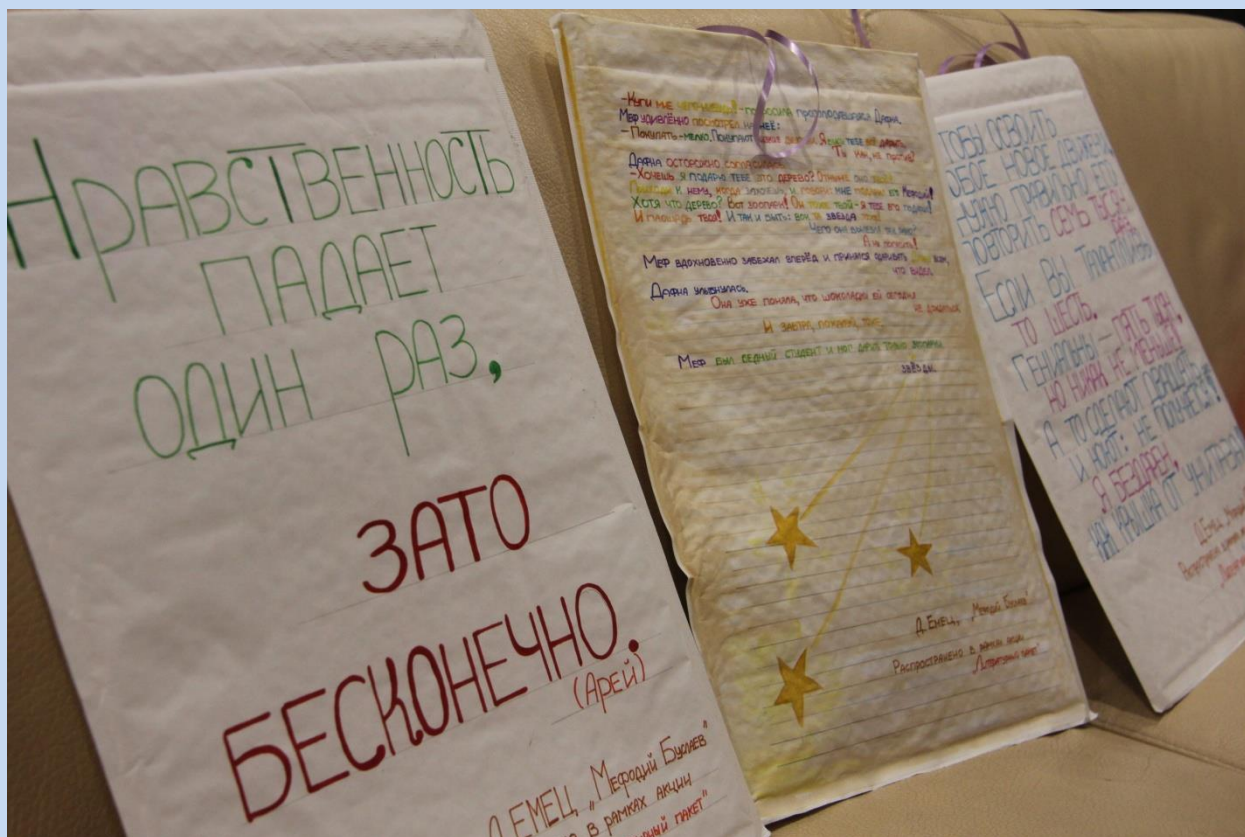 НРАВСТВЕННОСТЬ
ПАДАЕТ
ОДИН РАЗ,
ЗАТО
БЕСКОНЕЧНО.
(АРЕЙ)
Д. ЕМЕЦ, „МЕФОДИЙ БУСЛАЕВ"
В РАМКАХ АКЦИИ
ПАКЕТ"
-КУПИ МНЕ ЧЕГО-НИБУДЬ! - ПОПРОСИЛА ПРОГОЛОДАВШАЯСЯ ДАФНА.
МЕФ УДИВЛЁННО ПОСМОТРЕЛ НА НЕЁ:
-ПОКУПАТЬ - МЕЛКО. ПОКУПАЮТ Я БУДУ ТЕБЕ ВСЁ ДАРИТЬ.
ТЫ КАК, НЕ ПРОТИВ?
ДАФНА ОСТОРОЖНО СОГЛАСИЛАСЬ.
-ХОЧЕШЬ Я ПОДАРЮ ТЕБЕ ЭТО ДЕРЕВО? ОТНЫНЕ ОНО ТВОЁ!
К НЕМУ, КОГДА ЗАХОЧЕШЬ, И ГОВОРИ: МНЕ ПОДАРИЛ ЕГО МЕФОДИЙ!
ХОТЯ ЧТО ДЕРЕВО? ВОТ ЗООПАРК! ОН ТОЖЕ ТВОЙ - Я ТЕБЕ ЕГО ПОДАРИЛ!
И ПЛОЩАДЬ ТВОЯ! И ТАК И БЫТЬ: ВОН ТА ЗВЕЗДА ТОЖЕ!
ЧЕГО ОНА
А НУ
МЕФ ВДОХНОВЕННО ЗАБЕЖАЛ ВПЕРЁД И ПРИНЯЛСЯ ДАРИТЬ ВСЁ,
ЧТО ВИДЕЛ.
ДАФНА УЛЫБНУЛАСЬ.
ОНА УЖЕ ПОНЯЛА, ЧТО ШОКОЛАДКИ ЕЙ СЕГОДНЯ
НЕ ДОЖДАТЬСЯ.
И ЗАВТРА, ПОЖАЛУЙ, ТОЖЕ.
МЕФ БЫЛ БЕДНЫЙ СТУДЕНТ И МОГ ДАРИТЬ ТОЛЬКО ЗООПАРКИ
ЗВЁЗДЫ.
Д. ЕМЕЦ, „МЕФОДИЙ БУСЛАЕВ"
РАСПРОСТРАНЕНО В РАМКАХ АКЦИИ
„ЛИТЕРАТУРНЫЙ ПАКЕТ"
ОСВОИТЬ
НОВОЕ ДВИЖЕНИЕ
НУЖНО ПРАВИЛЬНО ЕГО
ПОВТОРИТЬ СЕМЬ ТЫСЯЧ
РАЗ.
ЕСЛИ ВЫ ТАЛАНТЛИВЫ
ТО ШЕСТЬ.
ГЕНИАЛЬНЫ - ПЯТЬ ТЫСЯЧ,
НО НИКАК НЕ МЕНЬШЕ!
А ТО СДЕЛАЮТ ДВАДЦАТЬ
И НОЮТ: НЕ ПОЛУЧАЕТСЯ!
Я БЕЗДАРЕН,
КАК КРЫШКА ОТ УНИТАЗА!
Д. ЕМЕЦ